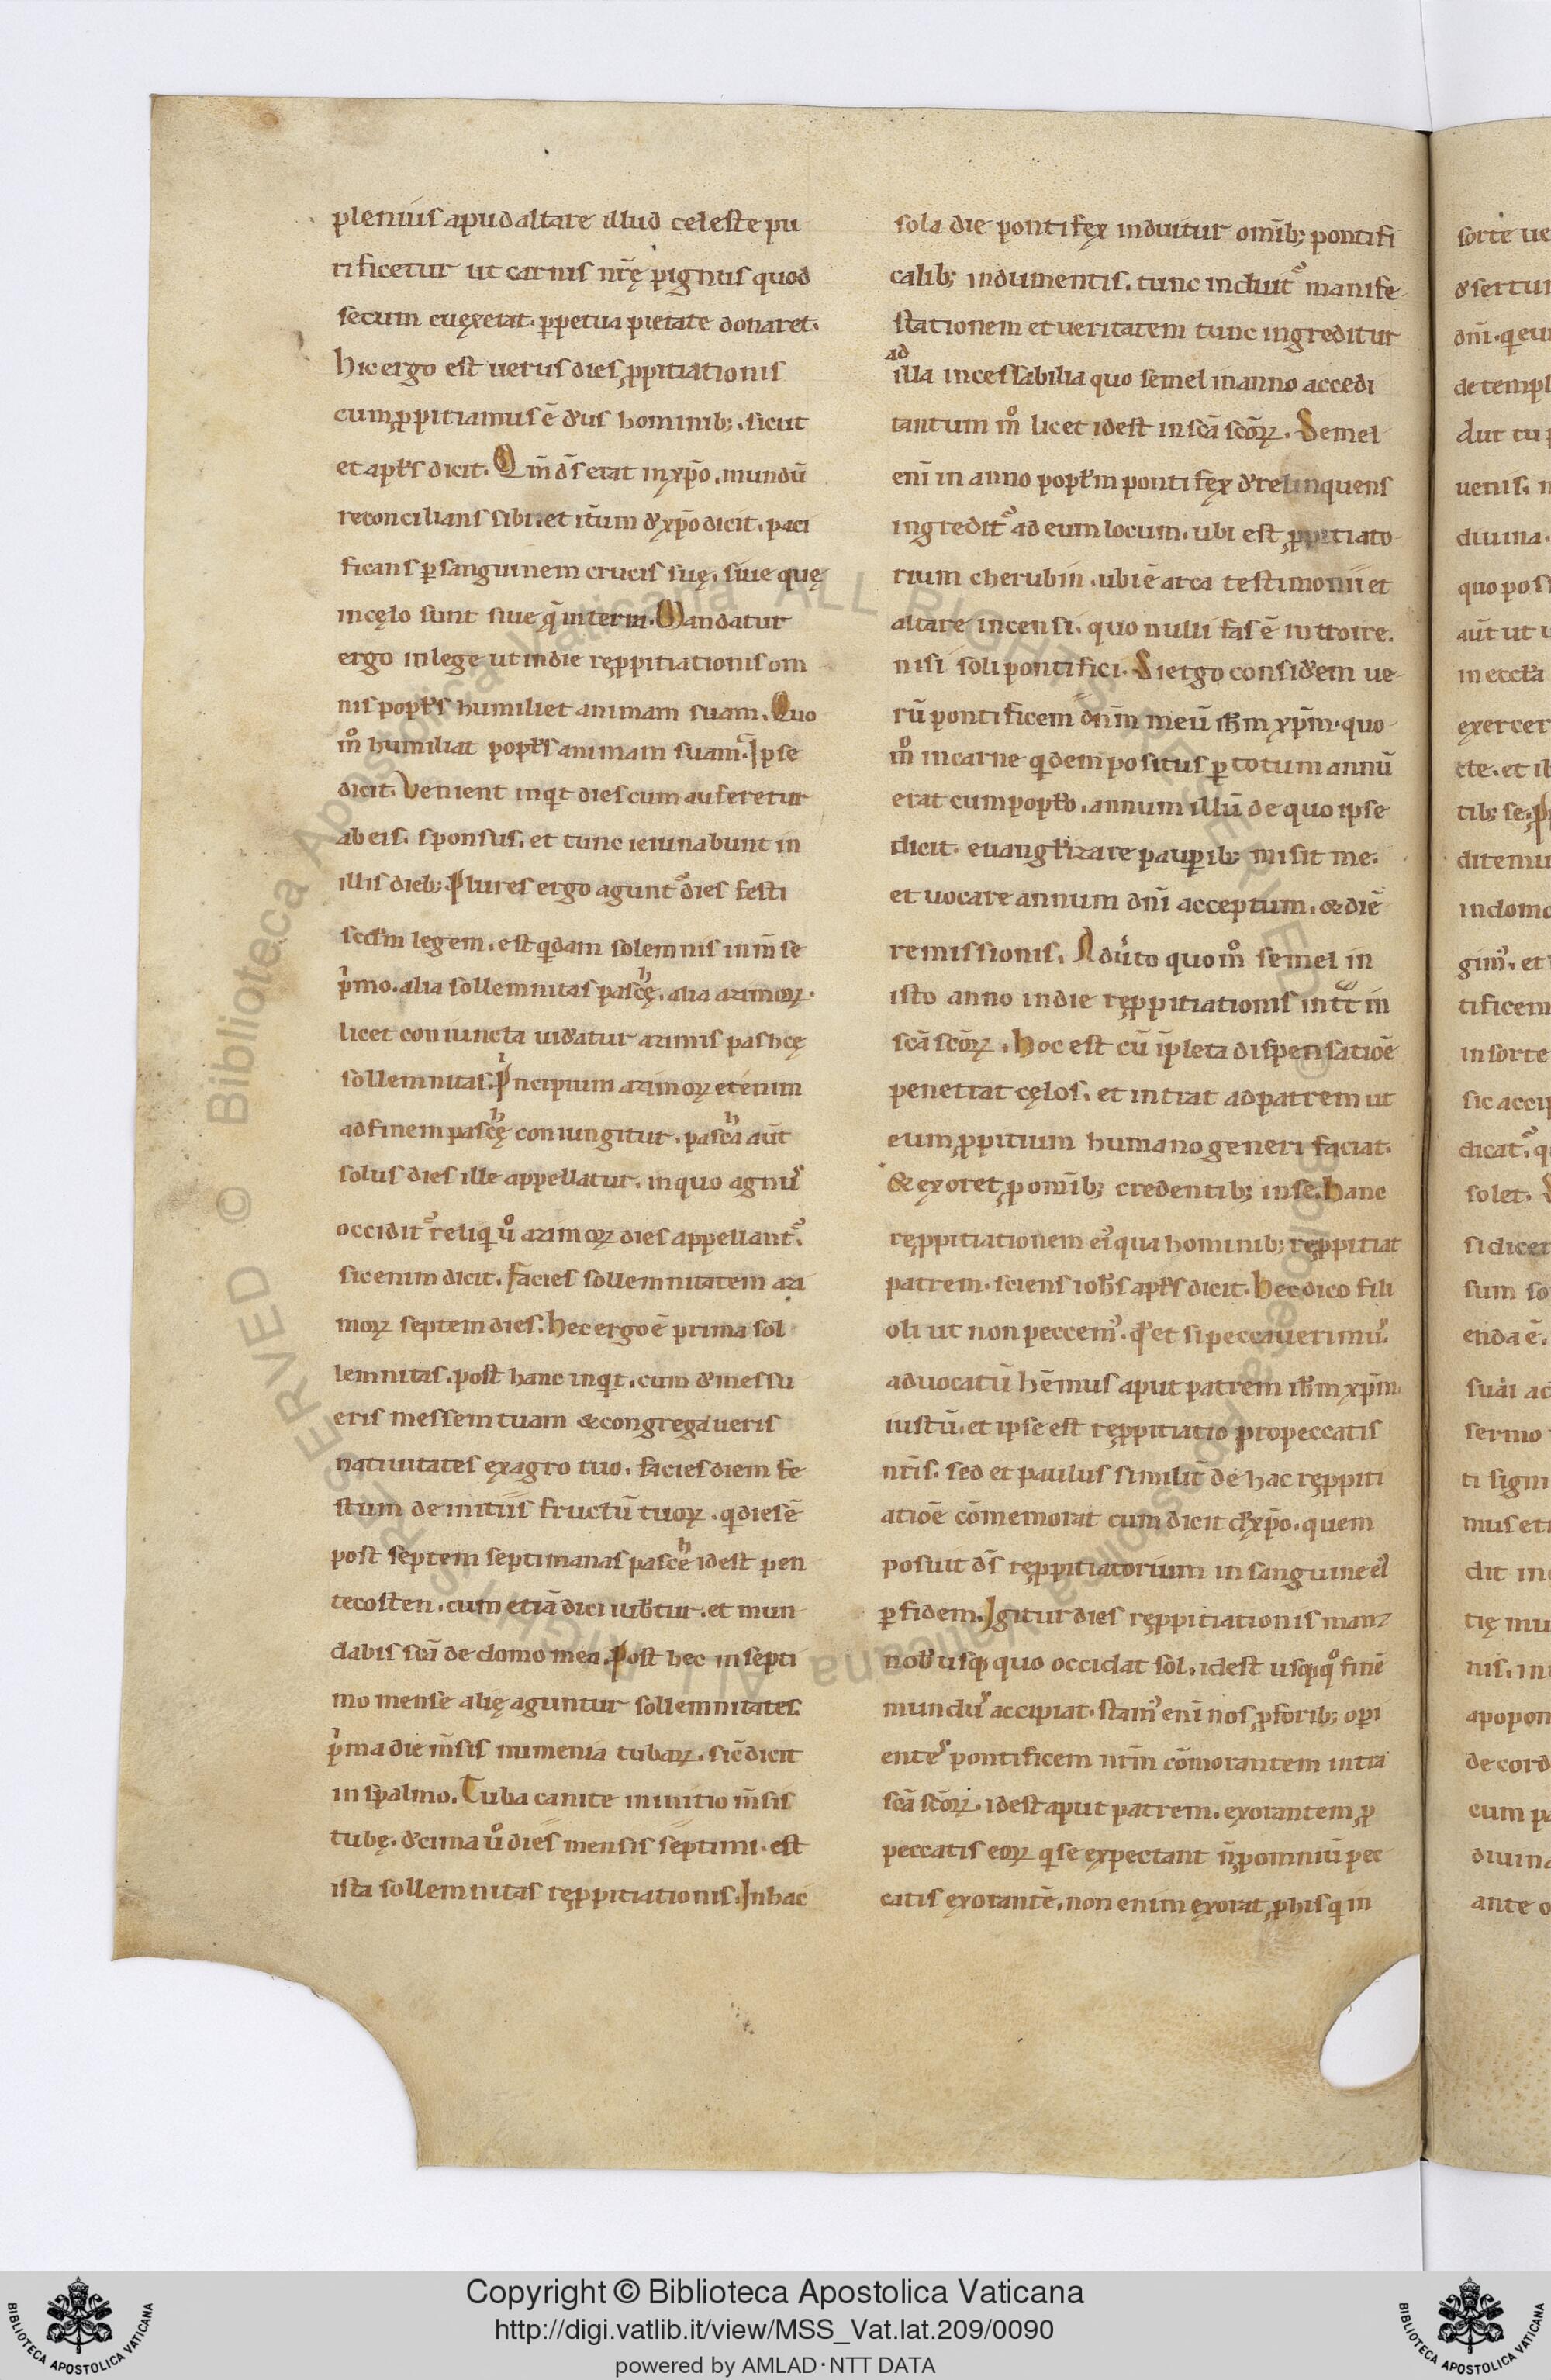 plenius apud altare illud celeste pu
rificetur ut carnis nr̄ę pignus quod
secum euexerat. ꝑpetua pietate donaret.
hic ergo est uerus dies ꝓpitiationis
cum ꝓpitiamus ē d̄us hominib;. sicut
et apłs dicit. Qm̄ d̄s erat in xp̄o. mundū
reconcilians sibi. et it̄um d̄ xp̄o dicit. paci
ficans ꝑ sanguinem crucis suę. siue quę
in cęlo sunt siue q̄ in terra. Mandatur
ergo in lege ut in die reꝓpitiationis om
nis popłs humiliet animam suam. Quo
m̊ humiliat popłs animam suam. Ipse
dicit. Venient inqt dies cum auferetur
ab eis. sponsus. et tunc ieiunabunt in
illis dieb; plures ergo agunt᷒ dies festi
secd̄m legem. est qdam solemnis in m̄se
pͥmo. alia sollemnitas paschę. alia azimoꝝ.
licet coniuncta uid̄atur azimis pashcę
sollemnitas. pͥncipium azimoꝝ etenim
ad finem paschę coniungitur. pascha aūt
solus dies ille appellatur. in quo agnus
occidit᷒ reliqi ů azimoꝝ dies appellant᷒.
sic enim dicit. facies sollemnitatem azi
moꝝ septem dies. hec ergo ē prima sol
lemnitas. post hanc inqt. cum d̄messu
eris messem tuam & congregaueris
natiuitates ex agro tuo. facies diem fe
stum de initiis fructū tuoꝝ. q dies ē
post septem septimanas pasche idest pen
tecosten. cum etiā dici iubt̄ur. et mun
dabis sc̄a de domo mea. post hec in septi
mo mense alię aguntur sollemnitates.
pͥma die m̄sis numenia tubaꝝ. sic̄ dicit
in spalmo. Tuba canite in initio m̄sis
tubę. d̄cima ů dies mensis septimi. est
ista sollemnitas reꝓpitiationis. In hac
sola die pontifex induitur omīb; pontifi
calib; indumentis. tunc induit᷒ manife
stationem et ueritatem tunc ingreditur
ad
illa incessabilia quo semel in anno accedi
tantum m̊ licet idest in sc̄a sc̄oꝝ. Semel
enī in anno popłm pontifex d̄relinquens
ingredit᷒ ad eum locum. ubi est ꝓpitiato
rium cherubin. ubi ē arca testimonii et
altare incensi. quo nulli fas ē introire.
nisi soli pontifici. Si ergo consid̄em ue
rū pontificem dn̄m meū ihm̄ xp̄m. quo
m̊ in carne qdem positus ꝑ totum annū
erat cum popło. annum illū de quo ipse
dicit. euangłizare pauꝑib; misit me.
et uocare annum dn̄i acceptum. & diē
remissionis. Aduͥto quom̊ semel in
isto anno in die reꝓpitiationis int̄t in
sc̄a sc̄oꝝ. hoc est cū īpleta dispensatiōe
penetrat cęlos. et intrat ad patrem ut
eum ꝓpitium humano generi faciat.
& exoret ꝓ omīb; credentib; in se. hanc
reꝓpitiationem ei᷒ qua hominib; reꝓpitiat
patrem. sciens ioh̄s apłs dicit. hec dico fili
oli ut non peccem᷒. qd̄ et si peccauerimus.
aduocatū hēmus aput patrem ihm̄ xp̄m
iustū. et ipse est reꝓpitiatio pro peccatis
nr̄is. sed et paulus similit̄ de hac reꝓpiti
atiōe cōmemorat cum dicit d̄ xp̄o. quem
posuit d̄s reꝓpitiatorium in sanguine ei᷒
ꝑ fidem. Igitur dies reꝓpitiationis man&
nob᷒ usqꝫ quo occidat sol. idest usqꝫ qͦ finē
mundus accipiat. stam᷒ enī nos ꝓ forib; oꝑi
entes pontificem nr̄m cōmorantem intra
sc̄a sc̄oꝝ. idest aput patrem. exorantem ꝓ
peccatis eoꝝ q se expectant n̄ ꝓ omniū pec
catis exorantē. non enim exorat ꝓ his q in
sorte ue
d̄sertu
dn̄i. q eu
de templ
aut tu
uenis.
diuina.
quo pos
aūt ut
in eccła
exercer
cte. et
tib; se.
ditemu
in domo
gim᷒. et
tificem
in sorte
sic accip
dicat᷒. q
solet.
si dicer
sum so
enda ē.
suāi ac
sermo
ti signi
mus et
dit in
tię mu
nis. in
apopom
de cord
cum pa
diuina
ante o
Copyright © Biblioteca Apostolica Vaticana
http://digi.vatlib.it/view/MSS_Vat.lat.209/0090
powered by AMLAD·NTT DATA
BIBLIOTECA APOSTOLICA VATICANA
BIBLIOTECA APOSTOLICA VATICANA